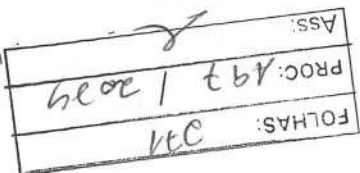 FOLHAS: 271
PROC: 197 / 2024
Ass: